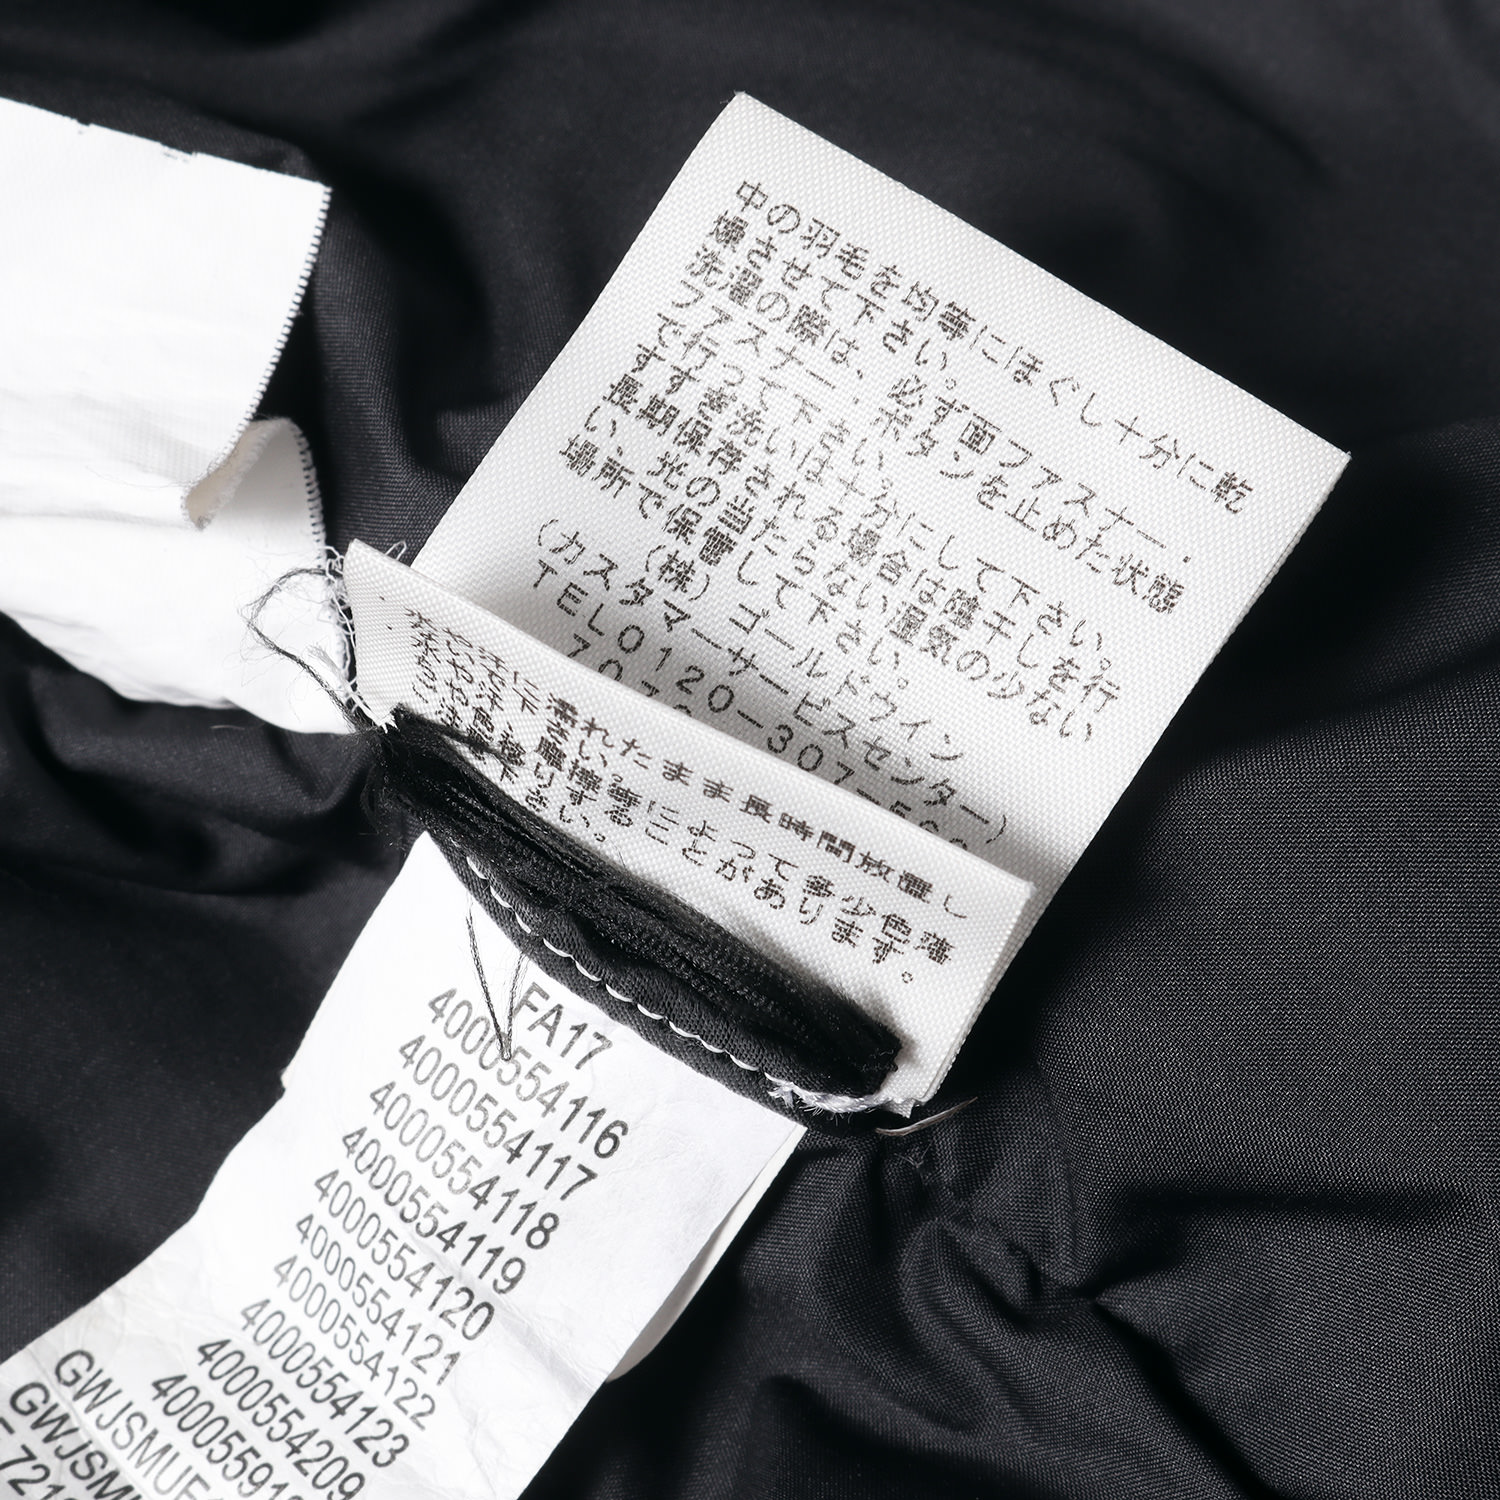 中の羽毛を均等にほぐし十分に乾
燥させて下さい。
洗濯の際は、必ず面ファスナー・
ファスナー、ボタンを止めた状態
で行って下さい。
すすぎ洗いは十分にして下さい。
長期保存される場合は陰干しを行
い、光の当たらない湿気の少ない
場所で保管して下さい。
(株)ゴールドウイン
(カスタマーサービスセンター)
TEL0120-307-560
濡れたまま長時間放置し
下さい。
摩擦等によって多少色落
移りすることがあります。
下さい。
FA17
4000554116
4000554117
4000554118
4000554119
4000554120
4000554121
4000554122
4000554123
4000554209
40005591
GWJSMUF
GWJSM
721